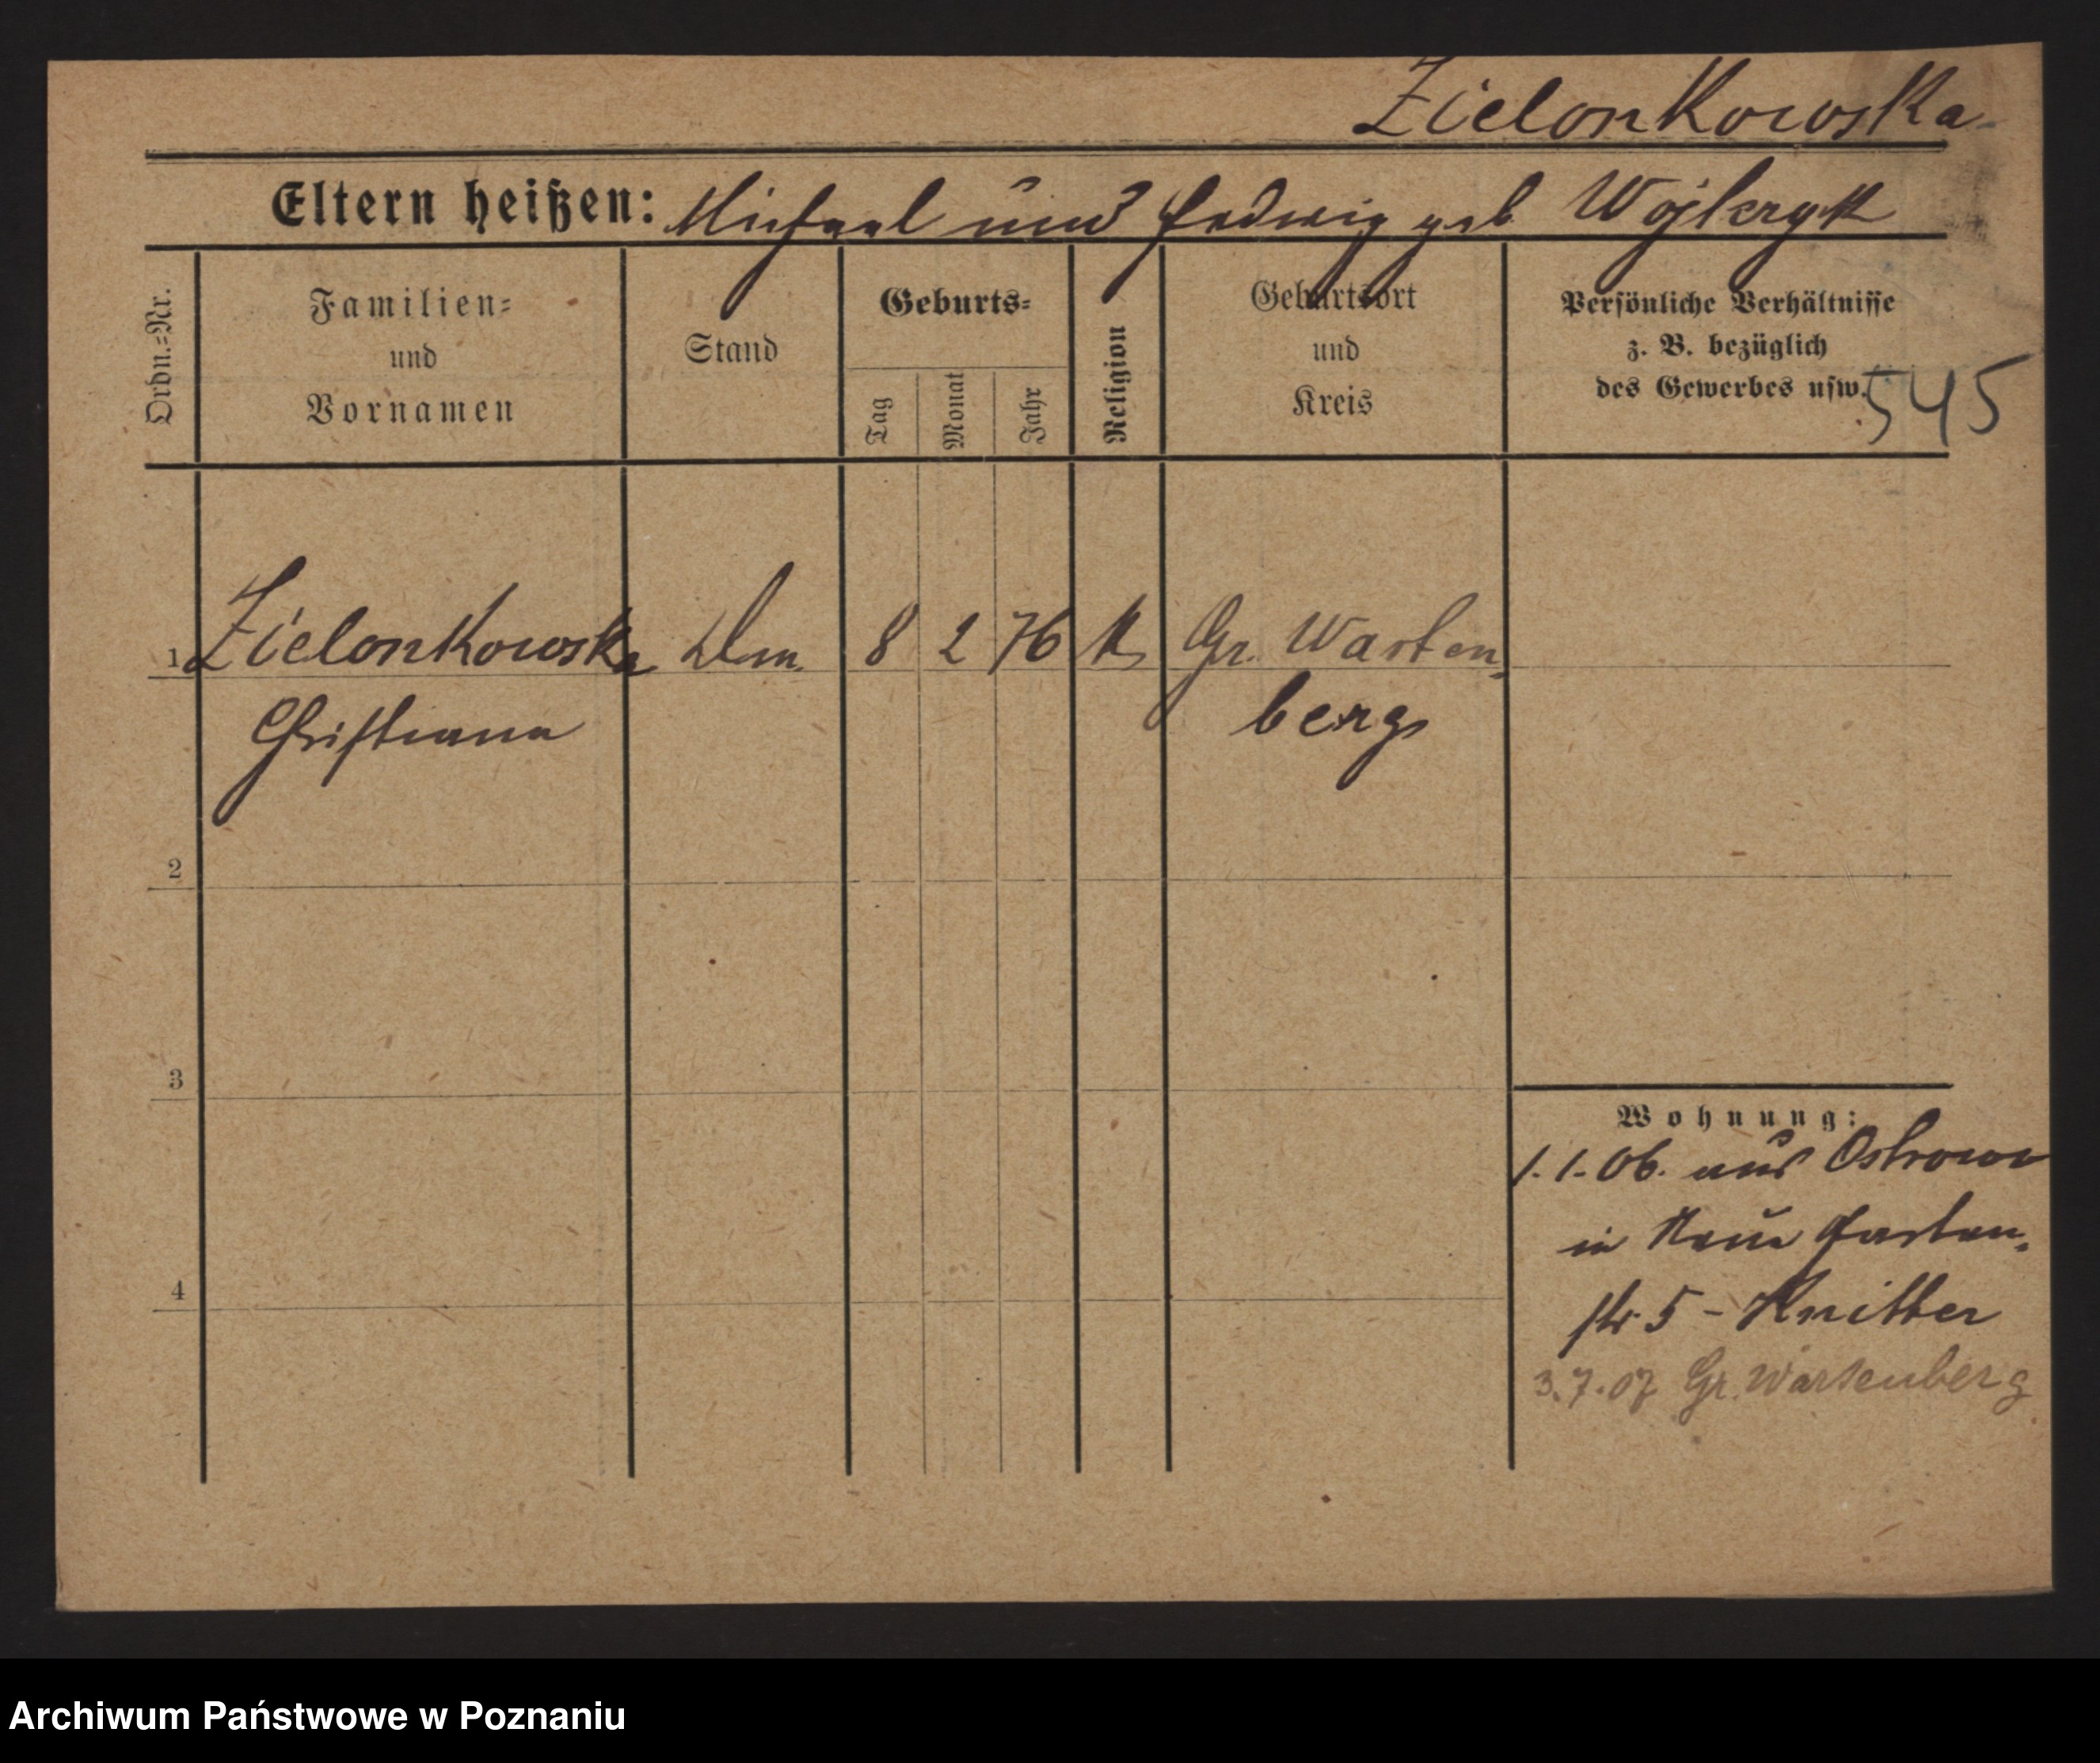 Zielonkowska
Eltern heißen: Michael und Hedwig geb. Wojkczyk
Ordn.=Nr.
Familien=
und
Vornamen
Stand
Geburts=
Tag
Monat
Jahr
Religion
Geburtsort
und
Kreis
Persönliche Verhältnisse
z. B. bezüglich
des Gewerbes usw.
545
1 Zielonkowska 8 2 76 K Gr. Warten
Christiana berg
2
3
4
Wohnung:
1.1.06. aus Ostrowo
in Neue Garten
str 5 - Knitter
3.7.07 Gr. Wartenberg
Archiwum Państwowe w Poznaniu